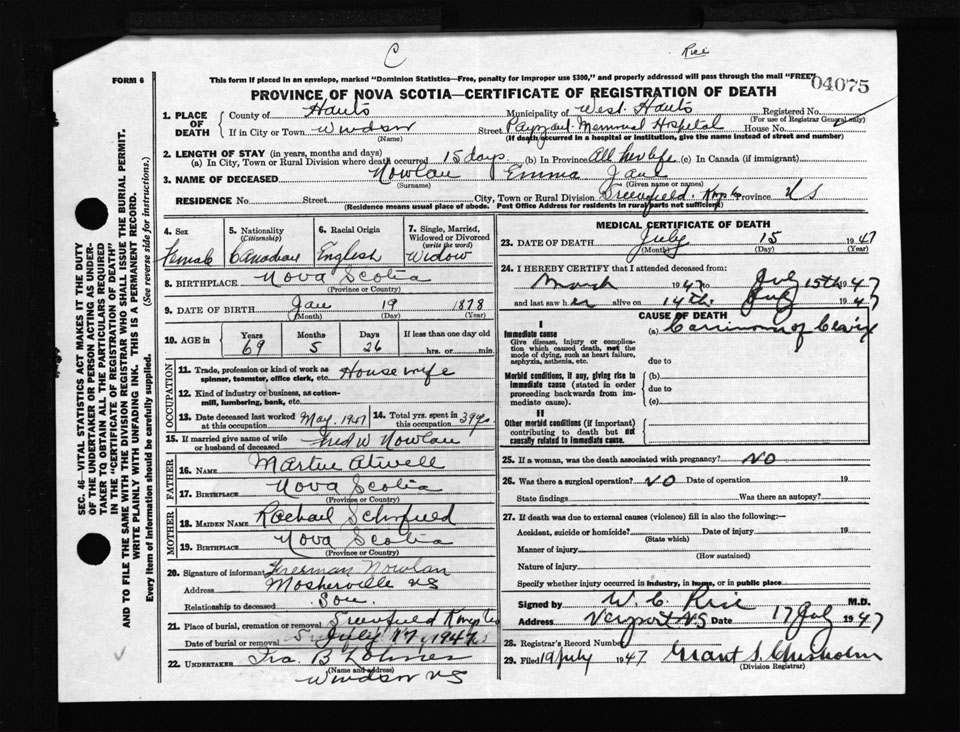 C
Rice
FORM 6
This form if placed in an envelope, marked "Dominion Statistics—Free, penalty for improper use $300," and properly addressed will pass through the mail "FREE"
04075
PROVINCE OF NOVA SCOTIA—CERTIFICATE OF REGISTRATION OF DEATH
1. PLACE OF DEATH
County of Hants Municipality of West Hants Registered No.
(For use of Registrar General only)
If in City or Town Windsor Street Payzant Memorial Hospital House No.
(Name) (If death occurred in a hospital or institution, give the name instead of street and number)
2. LENGTH OF STAY (in years, months and days)
(a) In City, Town or Rural Division where death occurred 15 days (b) In Province All her life (c) In Canada (if immigrant)
3. NAME OF DECEASED Nowlan Emma Jane
(Surname) (Given name or names)
RESIDENCE No. Street City, Town or Rural Division Greenfield Kings Province N S
(Residence means usual place of abode. Post Office Address for residents in rural parts not sufficient)
4. Sex
Female
5. Nationality
(Citizenship)
Canadian
6. Racial Origin
English
7. Single, Married, Widowed or Divorced
(write the word)
Widow
8. BIRTHPLACE Nova Scotia
(Province or Country)
9. DATE OF BIRTH Jan 19 1878
(Month) (Day) (Year)
10. AGE in
Years Months Days If less than one day old
69 5 26 hrs. or min.
OCCUPATION
11. Trade, profession or kind of work as spinner, teamster, office clerk, etc. Housewife
12. Kind of industry or business, as cotton-mill, lumbering, bank, etc.
13. Date deceased last worked at this occupation May 1947
14. Total yrs. spent in this occupation 39
15. If married give name of wife or husband of deceased Fred W Nowlan
FATHER
16. NAME Atwell
17. BIRTHPLACE Nova Scotia
(Province or Country)
MOTHER
18. MAIDEN NAME Rachael Schofield
19. BIRTHPLACE Nova Scotia
(Province or Country)
20. Signature of informant Freeman Nowlan
Address Mosherville NS
Relationship to deceased Son.
21. Place of burial, cremation or removal Greenfield Kings Co
Date of burial or removal July 17, 1947
22. UNDERTAKER Ira B Lohnes
(Name and address)
Windsor NS
MEDICAL CERTIFICATE OF DEATH
23. DATE OF DEATH July 15 1947
(Month) (Day) (Year)
24. I HEREBY CERTIFY that I attended deceased from:
March 1947 to July 15th 1947
and last saw her alive on 14th July 1947
CAUSE OF DEATH
I
Immediate cause
Give disease, injury or complication which caused death, not the mode of dying, such as heart failure, asphyxia, asthenia, etc.
(a) Carcinoma of Cervix
due to
Morbid conditions, if any, giving rise to immediate cause (stated in order proceeding backwards from immediate cause).
(b)
due to
(c)
II
Other morbid conditions (if important) contributing to death but not causally related to immediate cause.
25. If a woman, was the death associated with pregnancy? NO
26. Was there a surgical operation? NO Date of operation 19
State findings Was there an autopsy?
27. If death was due to external causes (violence) fill in also the following:—
Accident, suicide or homicide? Date of injury 19
(State which)
Manner of injury
(How sustained)
Nature of injury
Specify whether injury occurred in industry, in home, or in public place
Signed by W. C. Rice M.D.
Address Newport NS Date 17 July 1947
28. Registrar's Record Number
29. Filed 19 July 1947 Grant S. Chisholm
(Division Registrar)
SEC. 46—VITAL STATISTICS ACT MAKES IT THE DUTY OF THE UNDERTAKER OR PERSON ACTING AS UNDERTAKER TO OBTAIN ALL THE PARTICULARS REQUIRED IN THE "CERTIFICATE OF REGISTRATION OF DEATH" AND TO FILE THE SAME WITH THE DIVISION REGISTRAR WHO SHALL ISSUE THE BURIAL PERMIT.
WRITE PLAINLY WITH UNFADING INK. THIS IS A PERMANENT RECORD.
Every item of information should be carefully supplied. (See reverse side for instructions.)